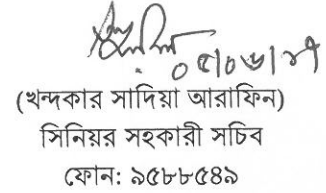 ০৫/০৬/১৭
(খন্দকার সাদিয়া আরাফিন)
সিনিয়র সহকারী সচিব
ফোন: ৯৫৮৮৫৪৯